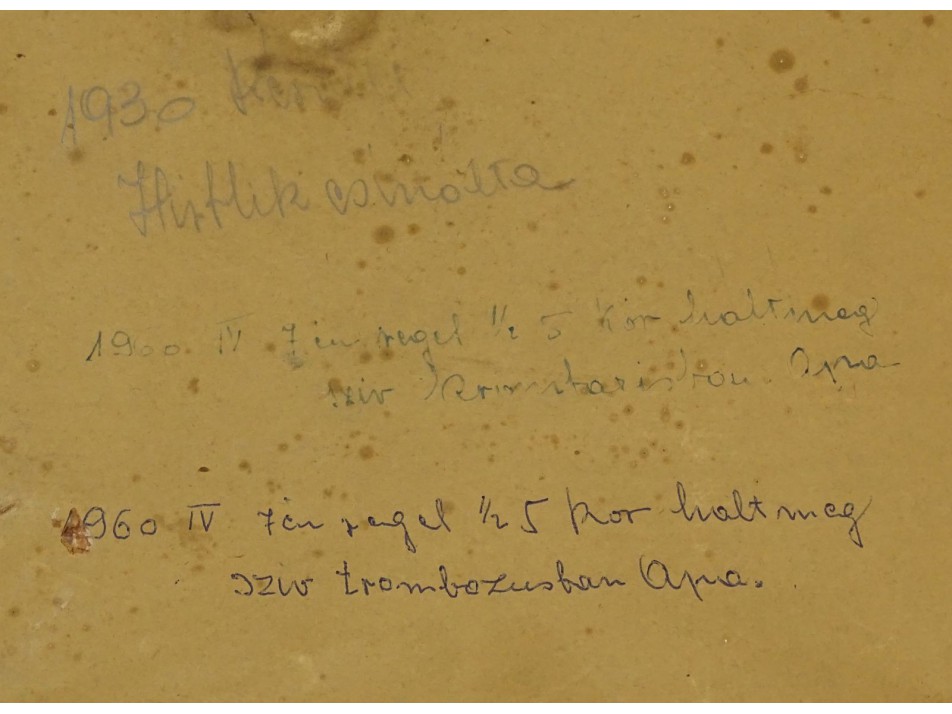 1930
csinálta
1960 IV 7én regel ½ 5 kor halt meg
sziv Apa
1960 IV 7én regel ½ 5 kor halt meg
sziv trombozusban Apa.